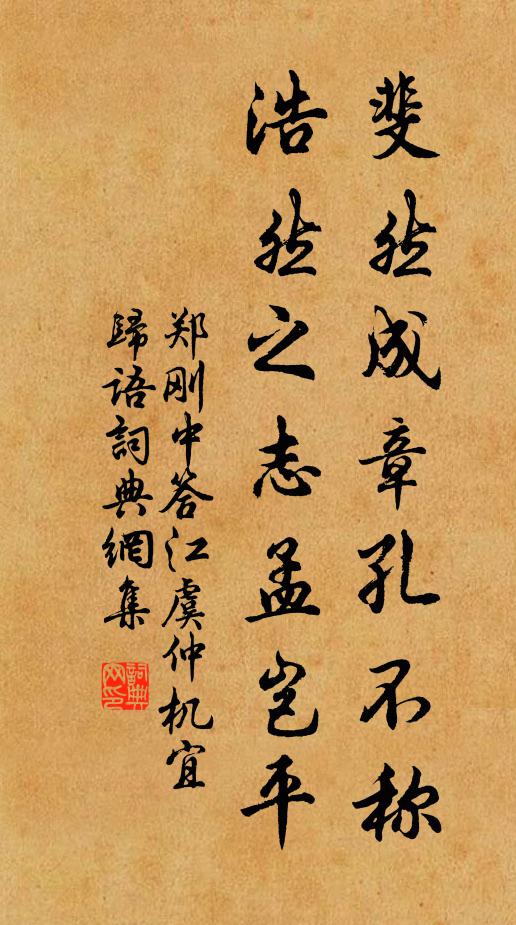 斐然成章孔不称
浩然之志孟岂平
郑刚中答江虞仲机宜
歸语詞典網集
詞典
网印